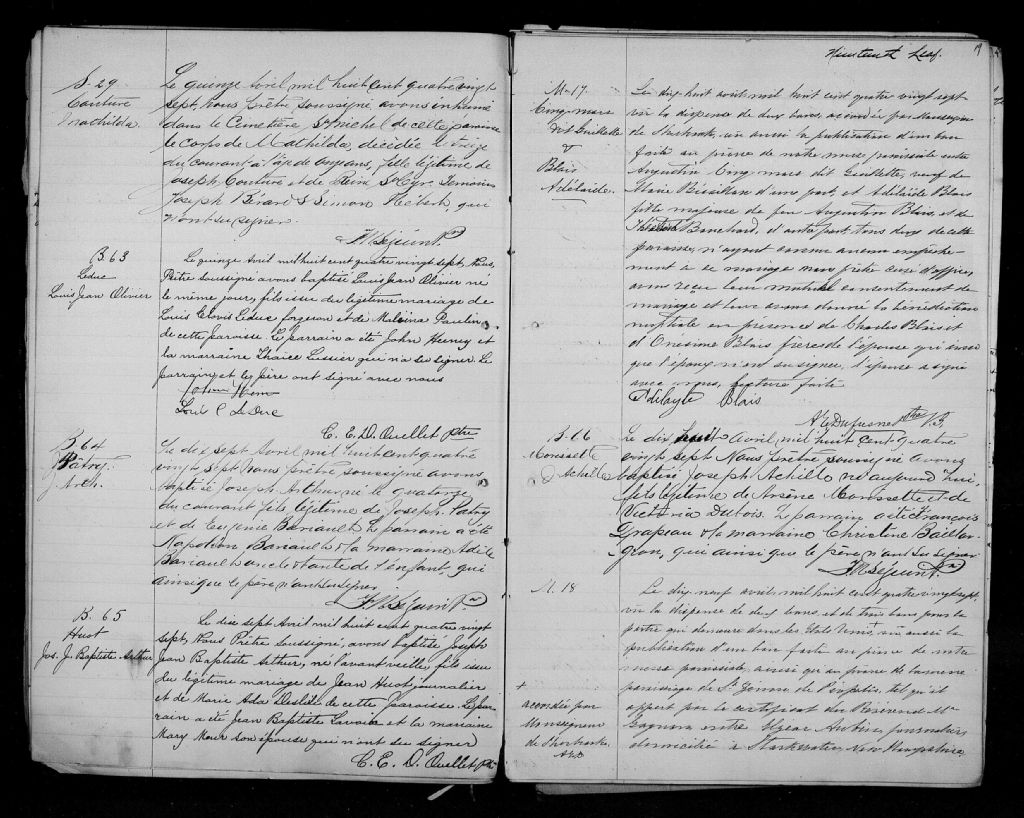 S. 29
Couture
Mathilda.
Le quinze avril mil huit cent quatre vingt
sept, nous prêtre soussigné avons inhumé
dans le Cimetière St Michel de cette paroisse
le corps de Mathilda, décédée le treize
du courant à l'âge de onze ans, fille légitime de
Joseph Couture et de St Cyr. Temoins
Joseph Pérard & Simon Hébert, qui
n'ont su signer.
B. 63
Leduc
Louis Jean Olivier
Le quinze Avril mil huit cent quatre vingt sept, Nous,
Prêtre soussigné avons baptisé Louis Jean Olivier né
le même jour, fils issu du légitime mariage de
Louis Clovis Leduc forgeron et de Malvina Paulin
de cette paroisse. Le parrain a été John Heeney et
la marraine Lussier qui n'a su signer. Le
parrain et le père ont signé avec nous
C. E. D. Ouellet ptre
B. 64
Pâtry
Arth.
Le dix sept Avril mil huit cent quatre
vingt sept nous prêtre soussigné avons
baptisé Joseph Arthur, né le quatorze
du courant fils légitime de Joseph Patry
et de Eugénie Bariault. Le parrain a été
Napoléon Bariault & la marraine Adèle
Bariault oncle & tante de l'enfant, qui
ainsi que le père n'ont su signer.
B. 65
Huot
Jos. J. Baptiste Arthur
Le dix sept Avril mil huit cent quatre vingt
sept, Nous Prêtre soussigné, avons baptisé Joseph
Jean Baptiste Arthur, né l'avant veille, fils issu
du légitime mariage de Jean Huot journalier
et de Marie Ada Deslile de cette paroisse. Le par-
rain a été Jean Baptiste Lavoie et la marraine
Mary son épouse qui n'ont su signer
C. E. D. Ouellet Ptr
Nineteenth Leaf.
19
M. 17.
Cinq-mars
dit Guillette
&
Blais
Adélaïde.
Le dix huit avril mil huit cent quatre vingt sept
vu la dispense de deux bans, accordée par Monseigneur
de Sherbrooke, vu aussi la publication d'un ban
faite au prône de notre messe paroissiale entre
Augustin Cinq-mars dit Guillette, veuf de
Marie Bissaillon d'une part, et Adélaïde Blais
fille majeure de feu Augustin Blais, et de
Blanchard, d'autre part, tous deux de cette
paroisse, n'ayant connu aucun empêche-
ment à ce mariage nous prêtre curé d'office,
avons reçu leur mutuel consentement de
mariage et leur avons donné la bénédiction
nuptiale en présence de Charles Blais et
d'Onesime Blais frères de l'épouse qui ainsi
que l'époux n'ont su signer, l'épouse a signé
avec nous, lecture faite
Adelayte Blais
A. E. Dufresne ptre V.G.
B. 66
Morissette
Achille
Le dix huit Avril mil huit cent quatre
vingt sept Nous prêtre soussigné avons
baptisé Joseph Achille né aujourd'hui,
fils légitime de Arsène Morissette et de
Victoria Dubois. Le parrain a été François
Grapeau & la marraine Christine Baillar-
geon, qui ainsi que le père n'ont su signer
M. 18
Le dix neuf avril mil huit cent quatre vingt sept,
vu la dispense de deux bans et de trois bans pour la
partie qui demeure dans les Etats Unis + vu aussi la
publication d'un ban faite au prône de notre
messe paroissiale, ainsi qu'au prône de la messe
paroissiale de St. de tel qu'il
appert par le certificat du Révérend Mr
Gagnon entre Elzear journalier,
domicilié à New Hampshire,
+
accordée par
Monseigneur
de Sherbrooke